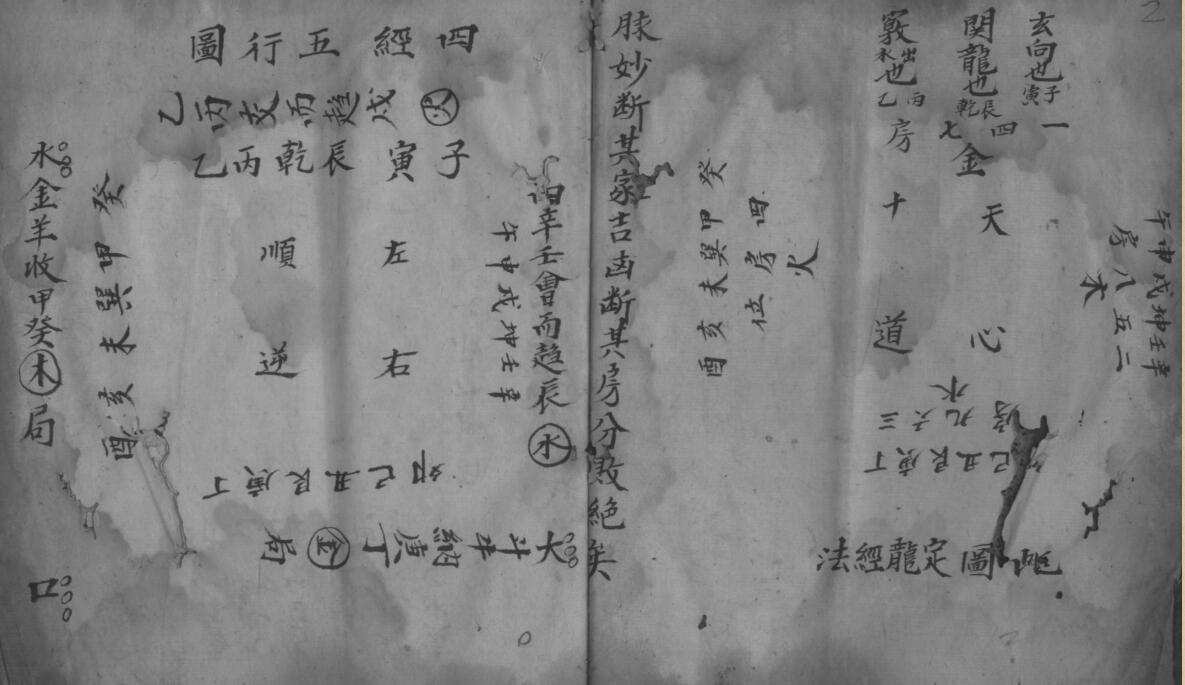 玄向也
子寅
関龍也
辰乾
竅也
出水
丙乙
一四七
金
房
十
天心
道
午申戌坤壬辛
房八五二
木
癸甲巽未亥酉
四房位
火
水
房九六三
卯己丑艮庚丁
此圖定龍經法
脉妙断其家吉凶断其房分敗絕矣
四經五行圖
乙丙交而趋戌火
子寅辰乾丙乙
辛壬會而趋辰水
午申戌坤壬辛
左右
順逆
卯己丑艮庚丁
大
斗牛納庚丁金局
癸甲巽未亥酉
金羊收甲癸木局
水
口